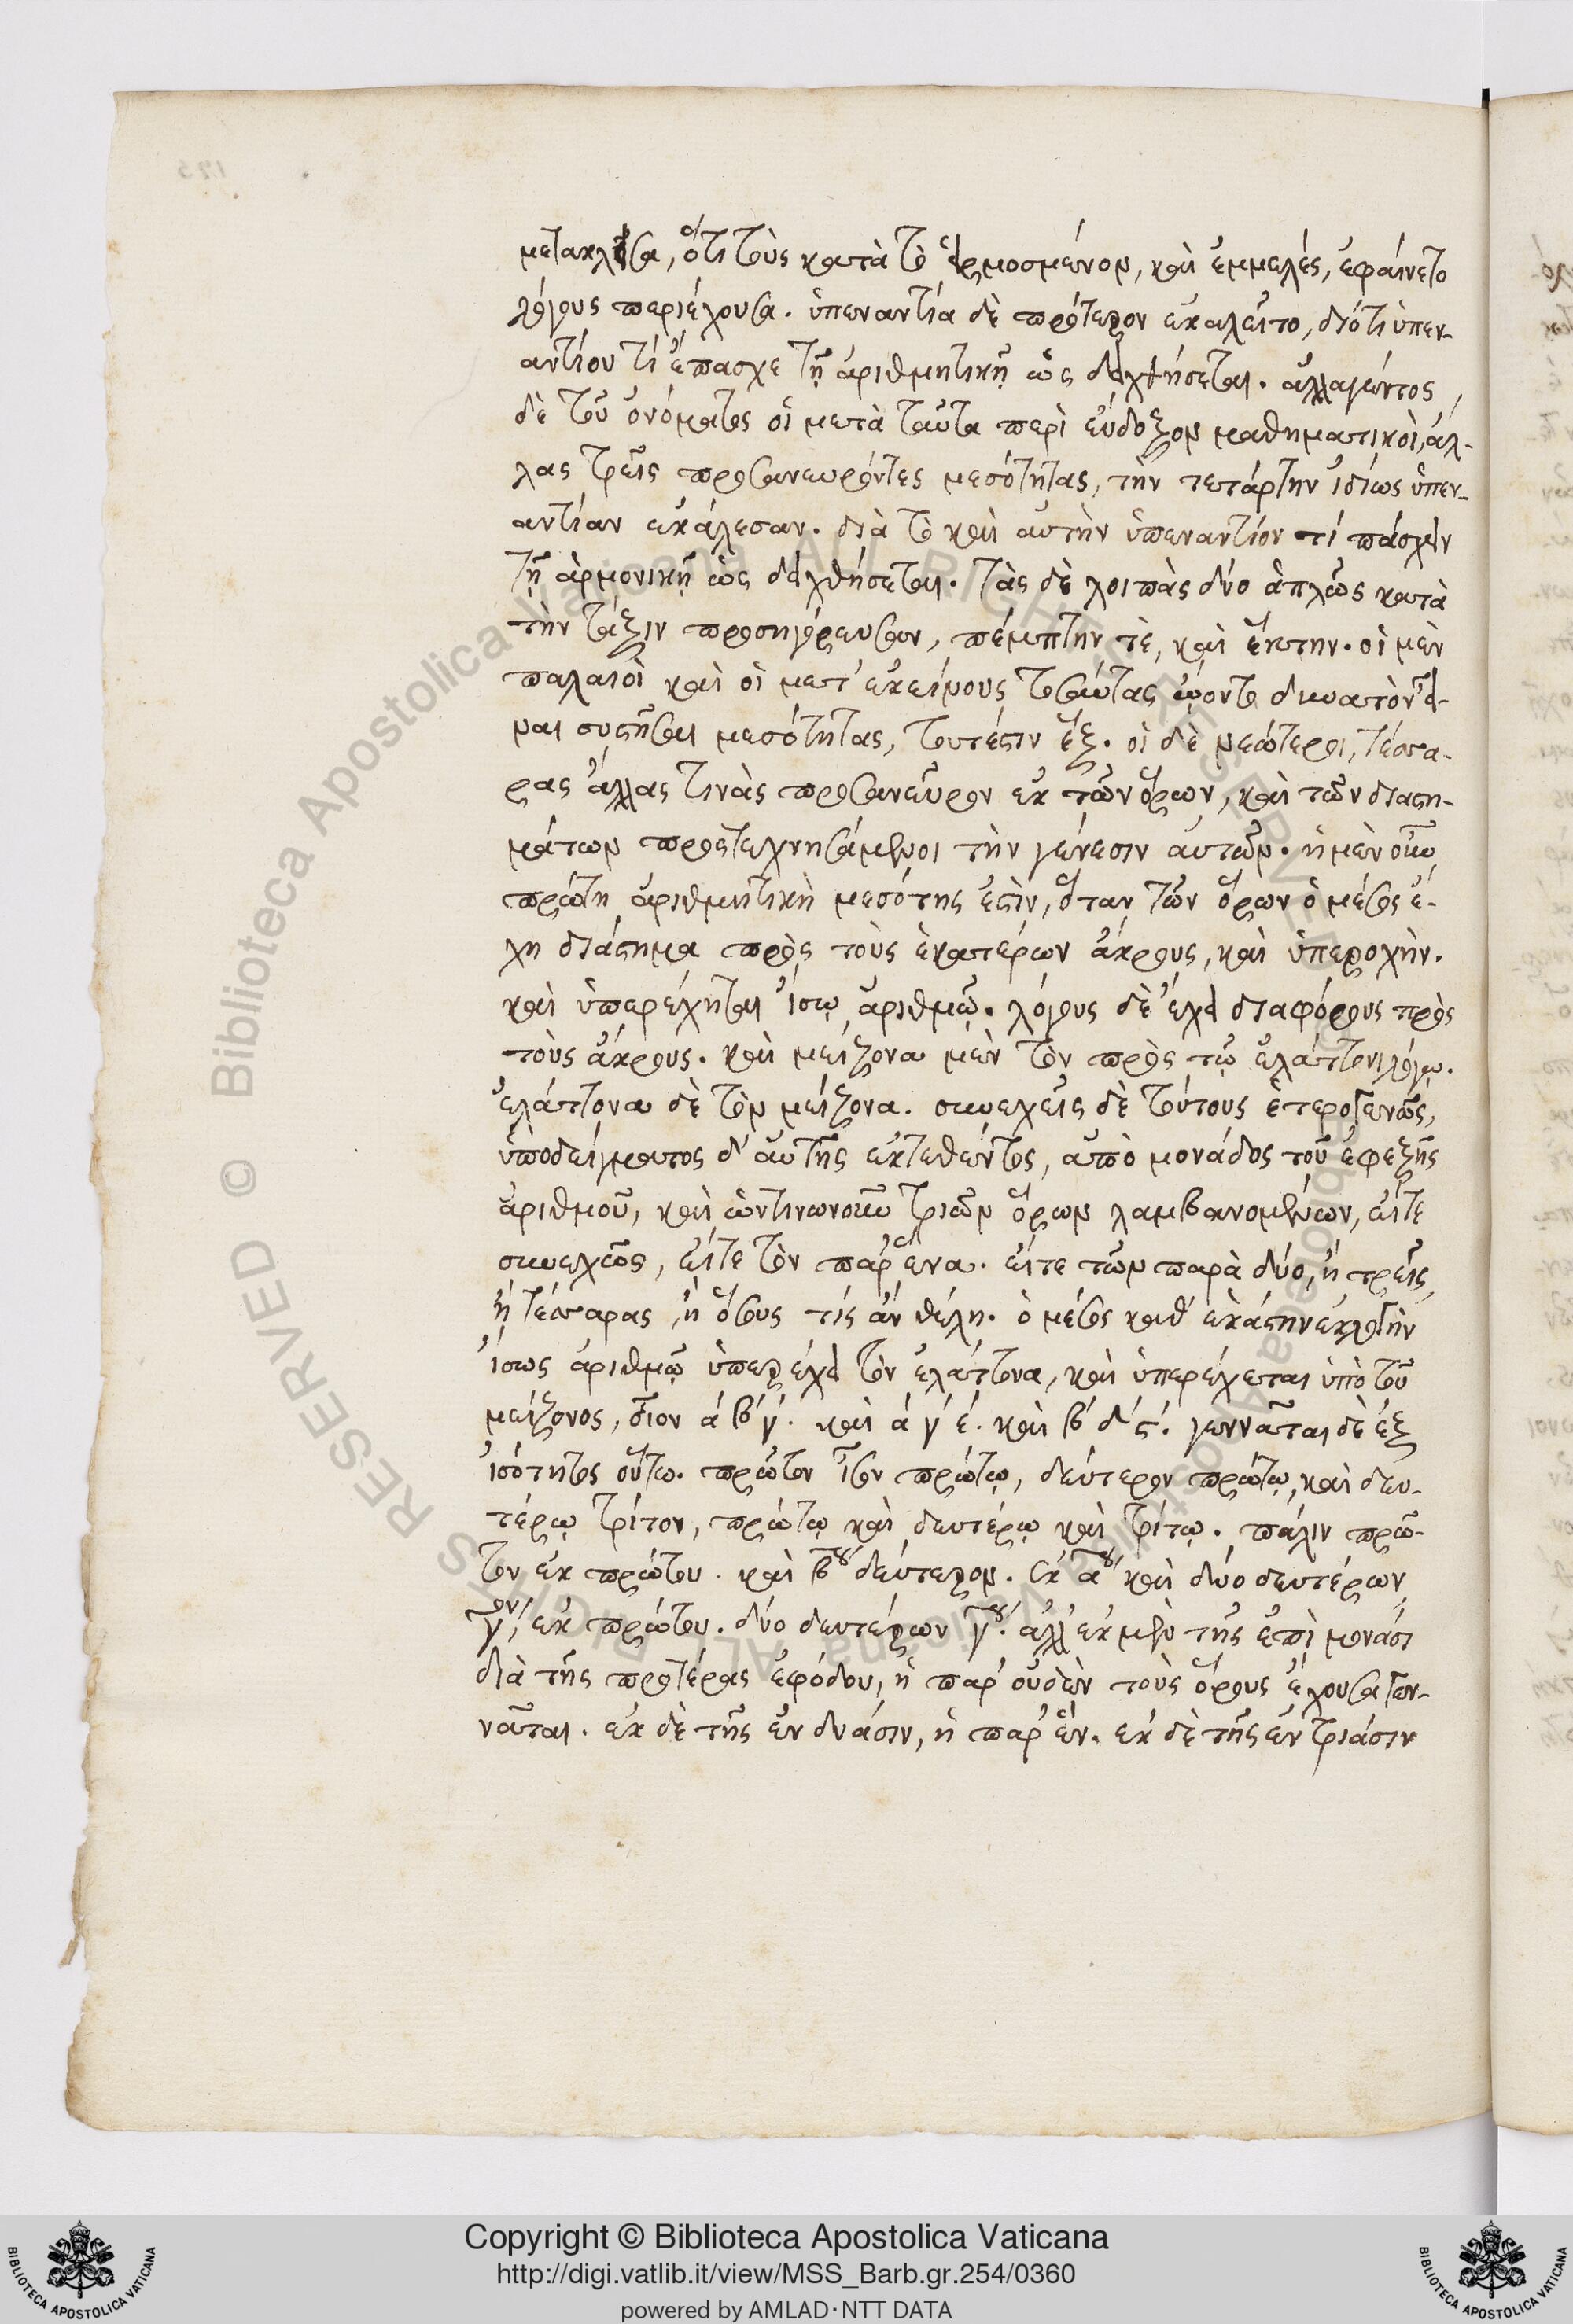 μετακληθεῖσα, ὅτι τοὺς κατὰ τὸ ἡρμοσμένον, καὶ ἐμμελές, ἐφαίνετο
λόγους περιέχουσα. ὑπεναντία δὲ πρότερον ἐκαλεῖτο, διότι ὑπεν-
αντίον τί ἔπασχε τῇ ἀριθμητικῇ ὡς δειχθήσεται. ἀλλαγέντος
δὲ τοῦ ὀνόματος οἱ μετὰ ταῦτα περὶ εὔδοξον μαθηματικοὶ, ἄλ-
λας τρεῖς προσανευρόντες μεσότητας, τὴν τετάρτην ἰδίως ὑπεν-
αντίαν ἐκάλεσαν. διὰ τὸ καὶ αὐτὴν ὑπεναντίον τί πάσχειν
τῇ ἁρμονικῇ ὡς δειχθήσεται. τὰς δὲ λοιπὰς δύο ἁπλῶς κατὰ
τὴν τάξιν προσηγόρευσαν, πέμπτην τὲ, καὶ ἕκτην. οἱ μὲν
παλαιοὶ καὶ οἱ μετ' ἐκείνους τοσαύτας ᾤοντο δυνατὸν εἶ-
ναι συστῆσαι μεσότητας, τουτέστιν ἕξ. οἱ δὲ νεώτεροι, τέσσα-
ρας ἄλλας τινὰς προσανεῦρον ἐκ τῶν ὅρων, καὶ τῶν διαστη-
μάτων προστεχνησάμενοι τὴν γένεσιν αὐτῶν. ἡ μὲν οὖν
πρώτη ἀριθμητικὴ μεσότης ἐστὶν, ὅταν τῶν ὅρων ὁ μέσος ἔ-
χη διάστημα πρὸς τοὺς ἑκατέρων ἄκρους, καὶ ὑπεροχὴν.
καὶ ὑπερέχηται ἴσῳ ἀριθμῷ. λόγους δὲ ἔχει διαφόρους πρὸς
τοὺς ἄκρους. καὶ μείζονα μὲν τὸν πρὸς τῷ ἐλάττονι λόγῳ.
ἐλάττονα δὲ τὸν μείζονα. συνεχεῖς δὲ τούτους ἑτερογενῶς,
ὑποδείγματος δ' αὐτῆς ἐκτεθέντος, ἀπὸ μονάδος τοῦ ἐφεξῆς
ἀριθμοῦ, καὶ ὡντινωνοῦν τριῶν ὅρων λαμβανομένων, εἴτε
συνεχῶς, εἴτε τὸν παρ' ἕνα. εἴτε τῶν παρὰ δύο, ἢ τρεῖς,
ἢ τέσσαρας, ἢ ὅσους τίς ἂν θέλῃ. ὁ μέσος καθ' ἑκάστην ἐκλογὴν
ἴσως ἀριθμῷ ὑπερέχει τὸν ἐλάττονα, καὶ ὑπερέχεται ὑπὸ τοῦ
μείζονος, οἷον ά β́ γ́. καὶ ά γ́ έ. καὶ β́ δ́ ϛ́. γεννᾶται δὲ ἐξ
ἰσότητος οὕτω. πρῶτον ἴσον πρώτῳ, δεύτερον πρώτῳ, καὶ δευ-
τέρῳ τρίτον, πρώτῳ καὶ δευτέρῳ καὶ τρίτῳ. πάλιν πρῶ-
τον ἐκ πρώτου. καὶ βου δεύτερον. ἐκ αου καὶ δύο δευτέρων
γον, ἐκ πρώτου. δύο δευτέρων γου. ἀλλ' ἐκ μὲν τῆς ἐπὶ μονάσι
διὰ τῆς προτέρας ἐφόδου, ἡ παρ' οὐδὲν τοὺς ὅρους ἔχουσα γεν-
νᾶται. ἐκ δὲ τῆς ἐν δυάσιν, ἡ παρ' ἕν. ἐκ δὲ τῆς ἐν τριάσιν
Copyright © Biblioteca Apostolica Vaticana
http://digi.vatlib.it/view/MSS_Barb.gr.254/0360
powered by AMLAD·NTT DATA